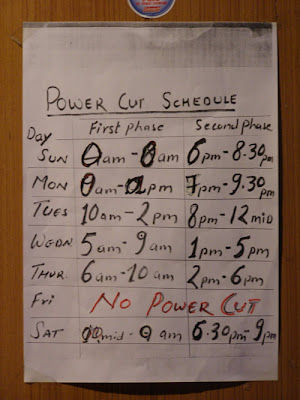 POWER CUT SCHEDULE
Day First phase Second phase
SUN am - am 6pm - 8.30pm
MON am - pm 7pm - 9.30pm
TUES 10am - 2pm 8pm - 12mid
WEDN 5am - 9am 1pm - 5pm
THUR 6am - 10am 2pm - 6pm
Fri NO POWER CUT
SAT mid - am 6.30pm - 9pm